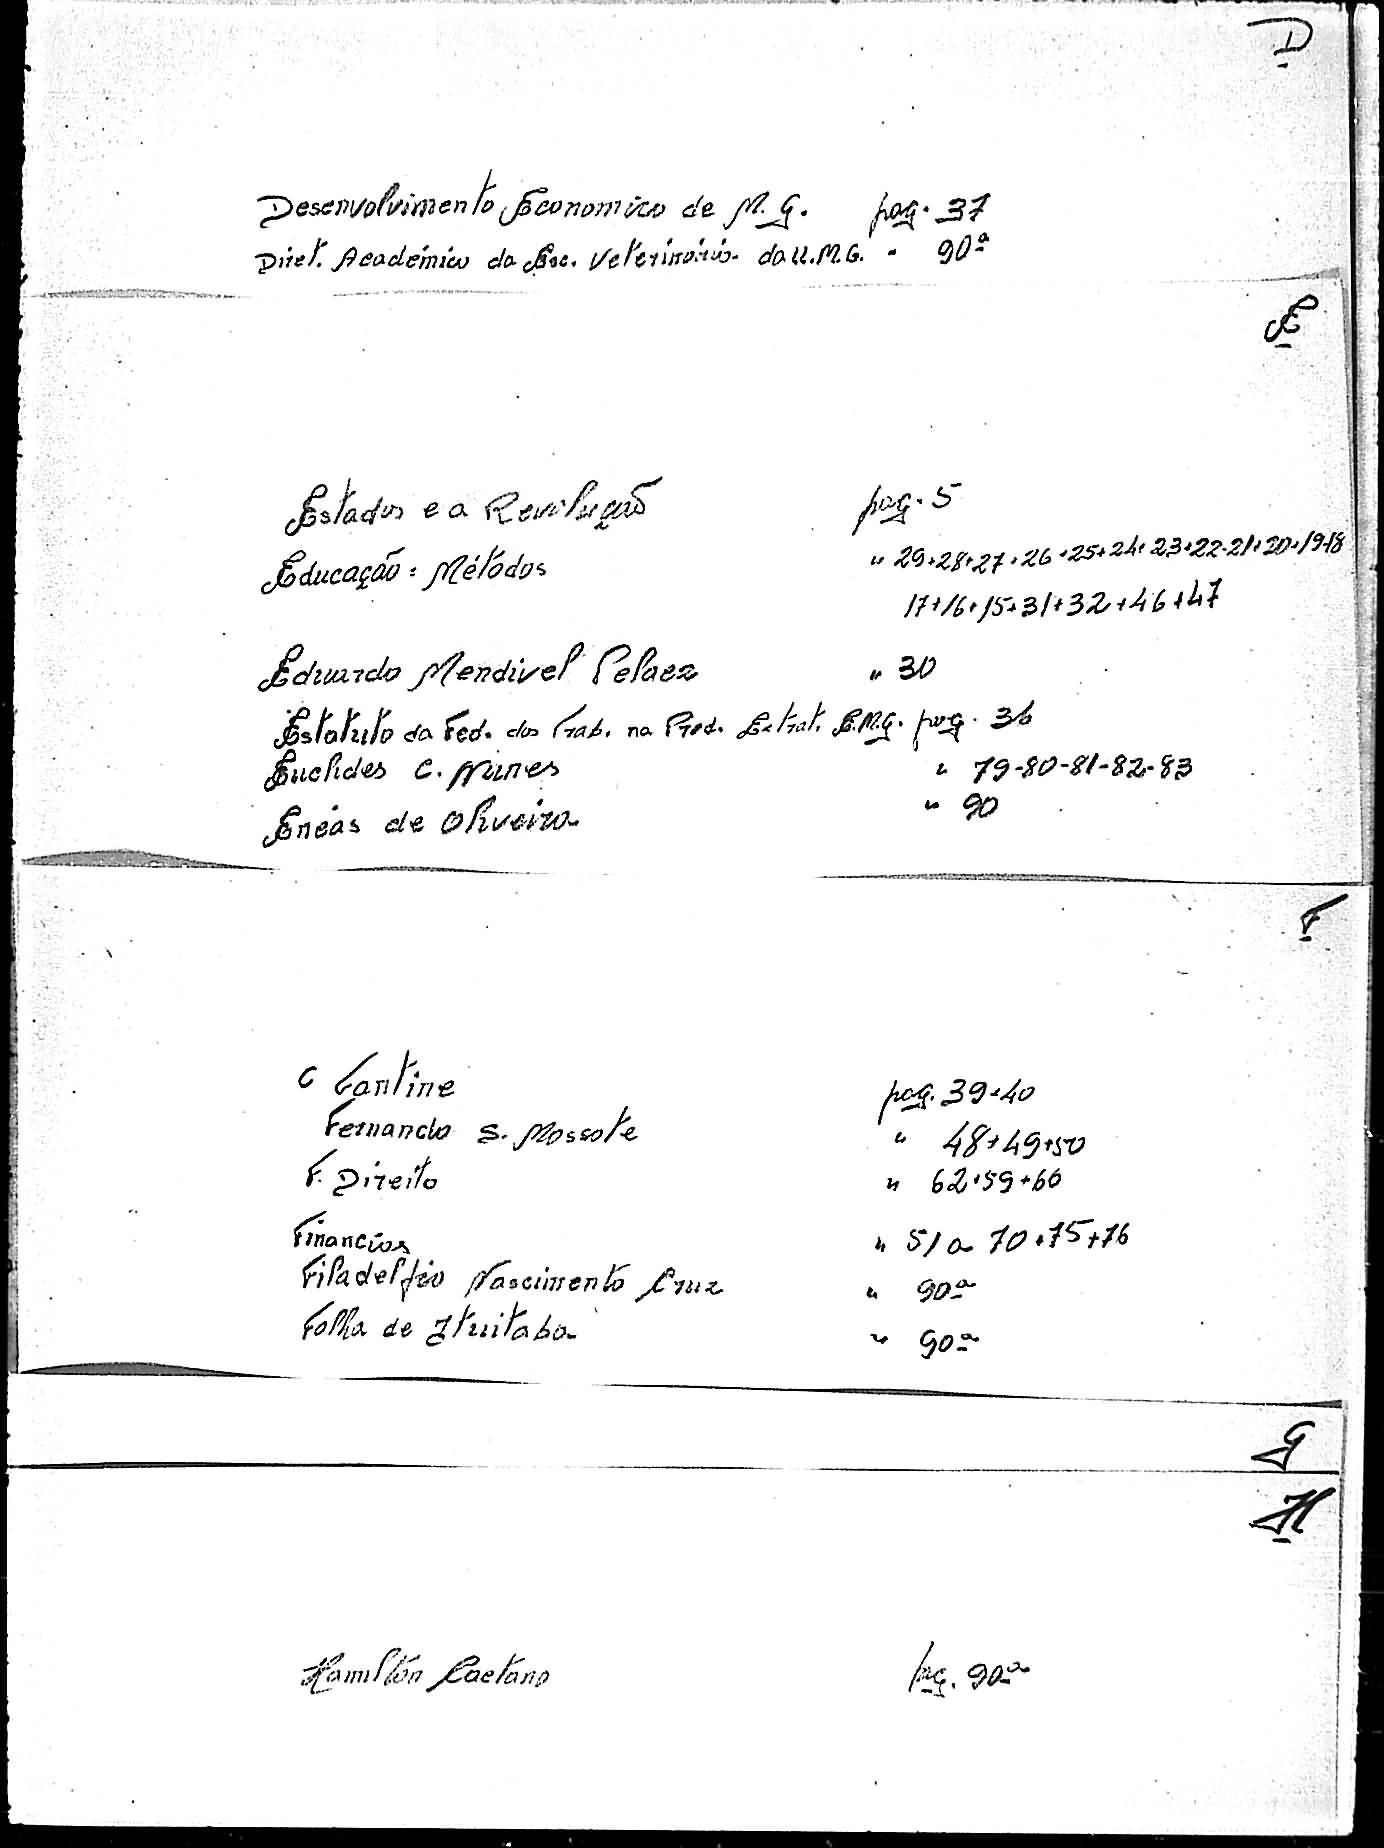 D
Desenvolvimento Economico de M.G. pag. 37
Diret. Académico da Esc. Veterinária da U.M.G. " 90ª
E
Estados e a Revolução pag. 5
Educação: Métodos " 29+28+27+26+25+24+23+22+21+20+19+18
17+16+15+31+32+46+47
Eduardo Mendivel Pelaez " 30
Estatuto da Fed. dos Trab. na Prod. Extrat. E.M.G. pag. 36
Euclides C. Nunes " 79-80-81-82-83
Enéas de Oliveira " 90
F
C Fantine pag. 39+40
Fernando S. Mossote " 48+49+50
F. Direito " 62+59+60
Financias " 51 a 70+75+76
Filadelfio Nascimento Cruz " 90ª
Folha de Ituitaba " 90ª
G
H
Hamilton Caetano pag. 90ª